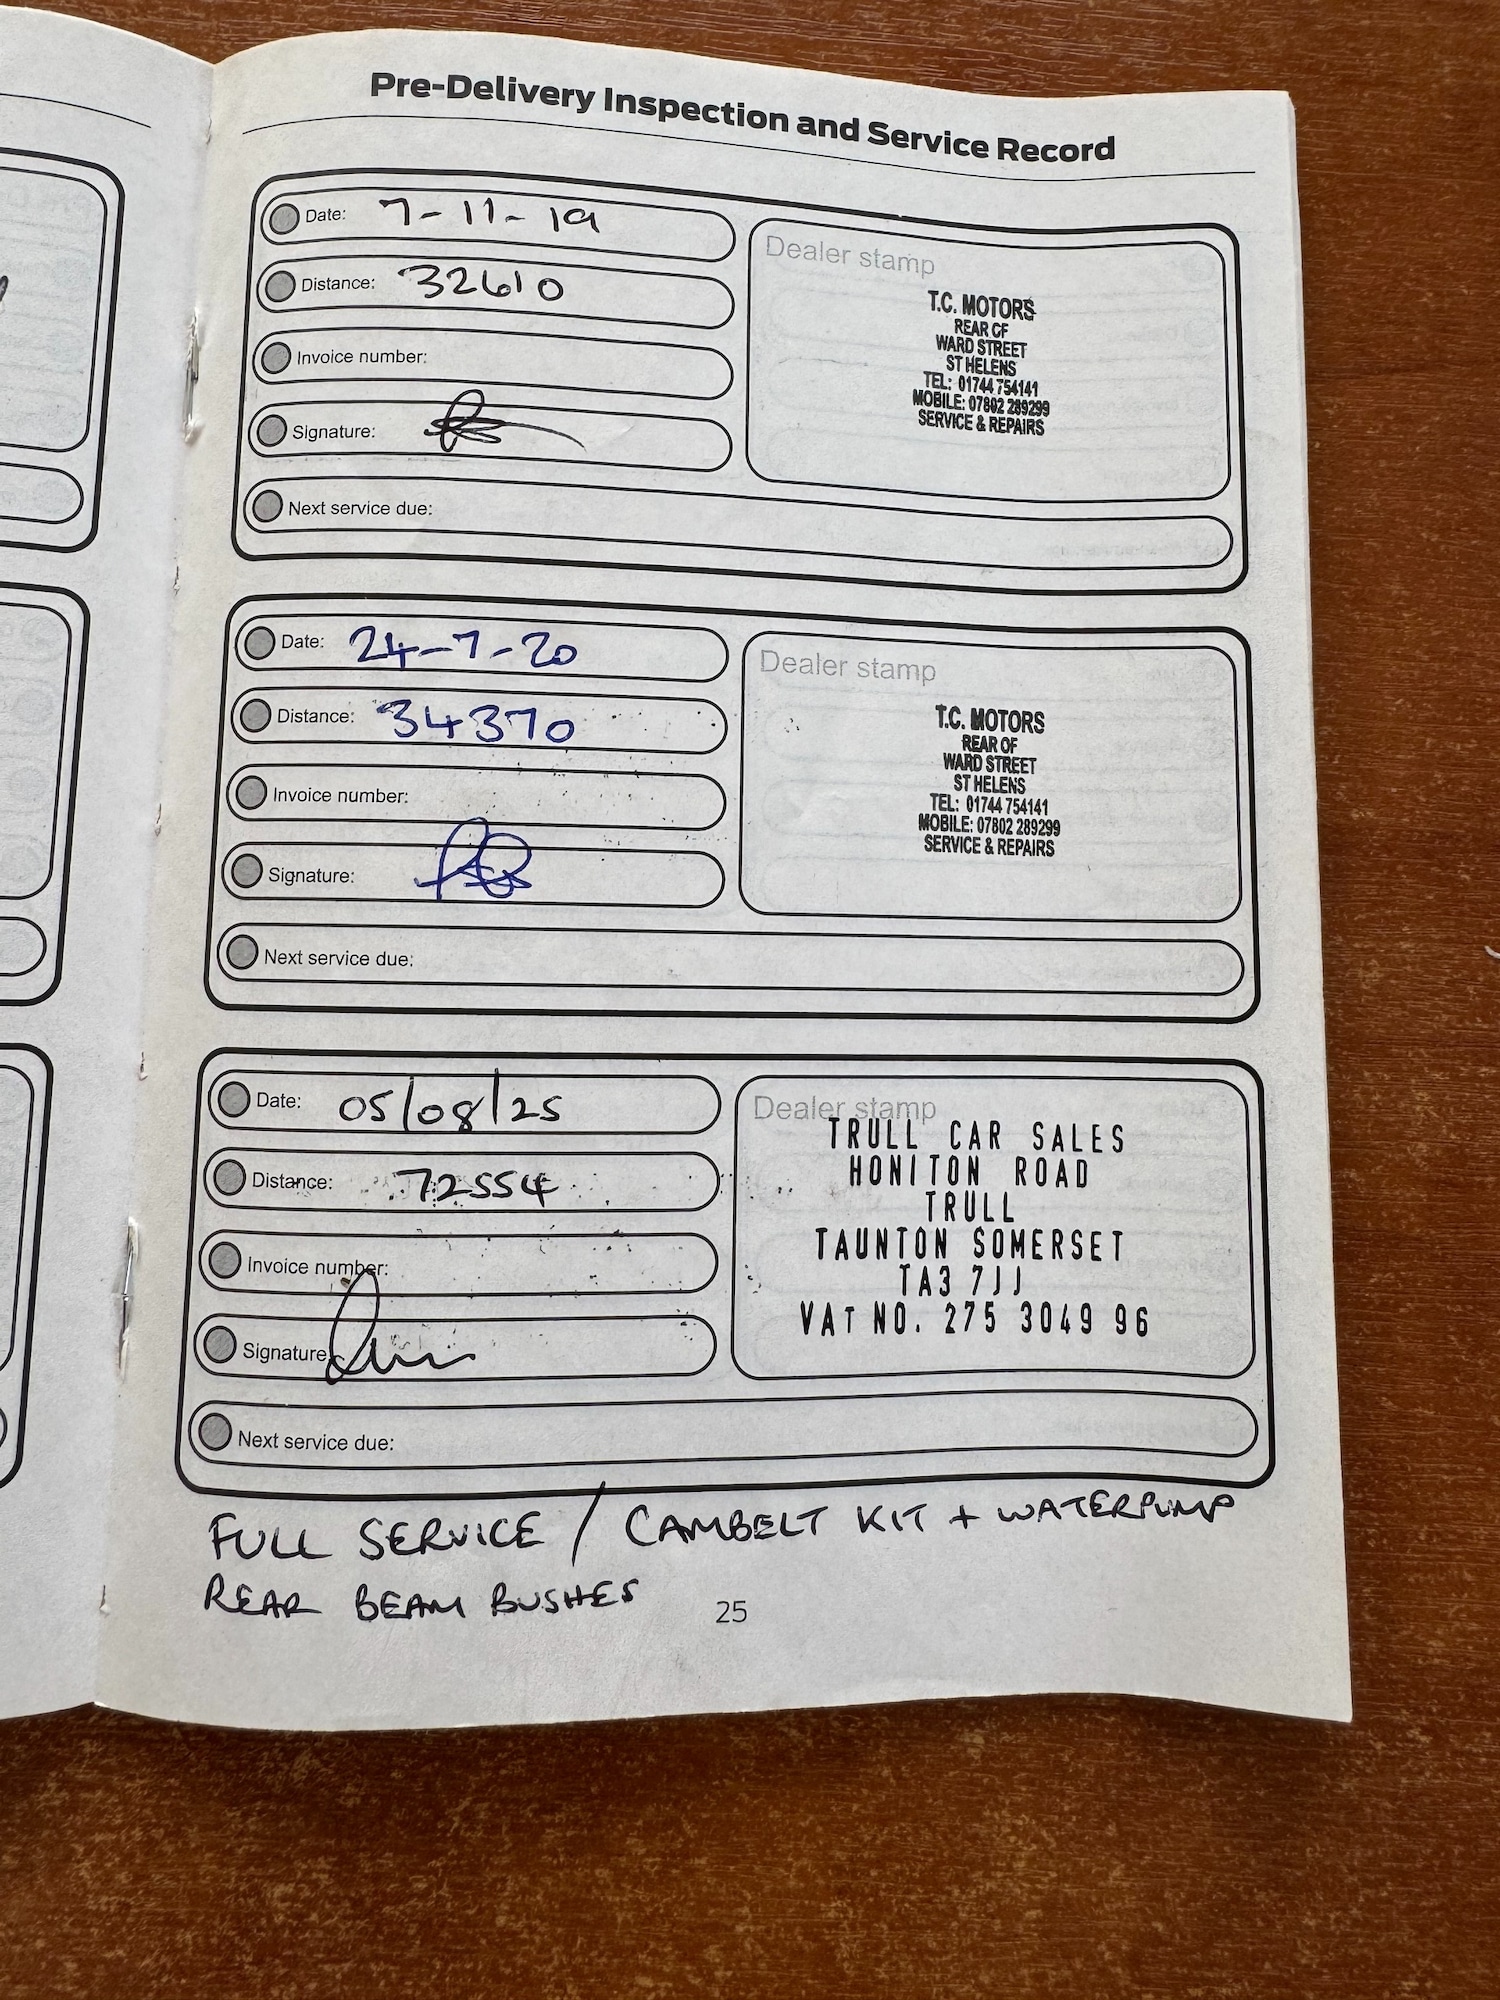 Pre-Delivery Inspection and Service Record
Date: 7-11-19
Distance: 32610
Invoice number:
Signature:
Next service due:
Dealer stamp
T.C. MOTORS
REAR OF
WARD STREET
ST HELENS
TEL: 01744 754141
MOBILE: 07802 289299
SERVICE & REPAIRS
Date: 24-7-20
Distance: 34370
Invoice number:
Signature:
Next service due:
Dealer stamp
T.C. MOTORS
REAR OF
WARD STREET
ST HELENS
TEL: 01744 754141
MOBILE: 07802 289299
SERVICE & REPAIRS
Date: 05/08/25
Distance: 72554
Invoice number:
Signature:
Next service due:
Dealer stamp
TRULL CAR SALES
HONITON ROAD
TRULL
TAUNTON SOMERSET
TA3 7JJ
VAT NO. 275 3049 96
FULL SERVICE / CAMBELT KIT + WATERPUMP
REAR BEAM BUSHES
25